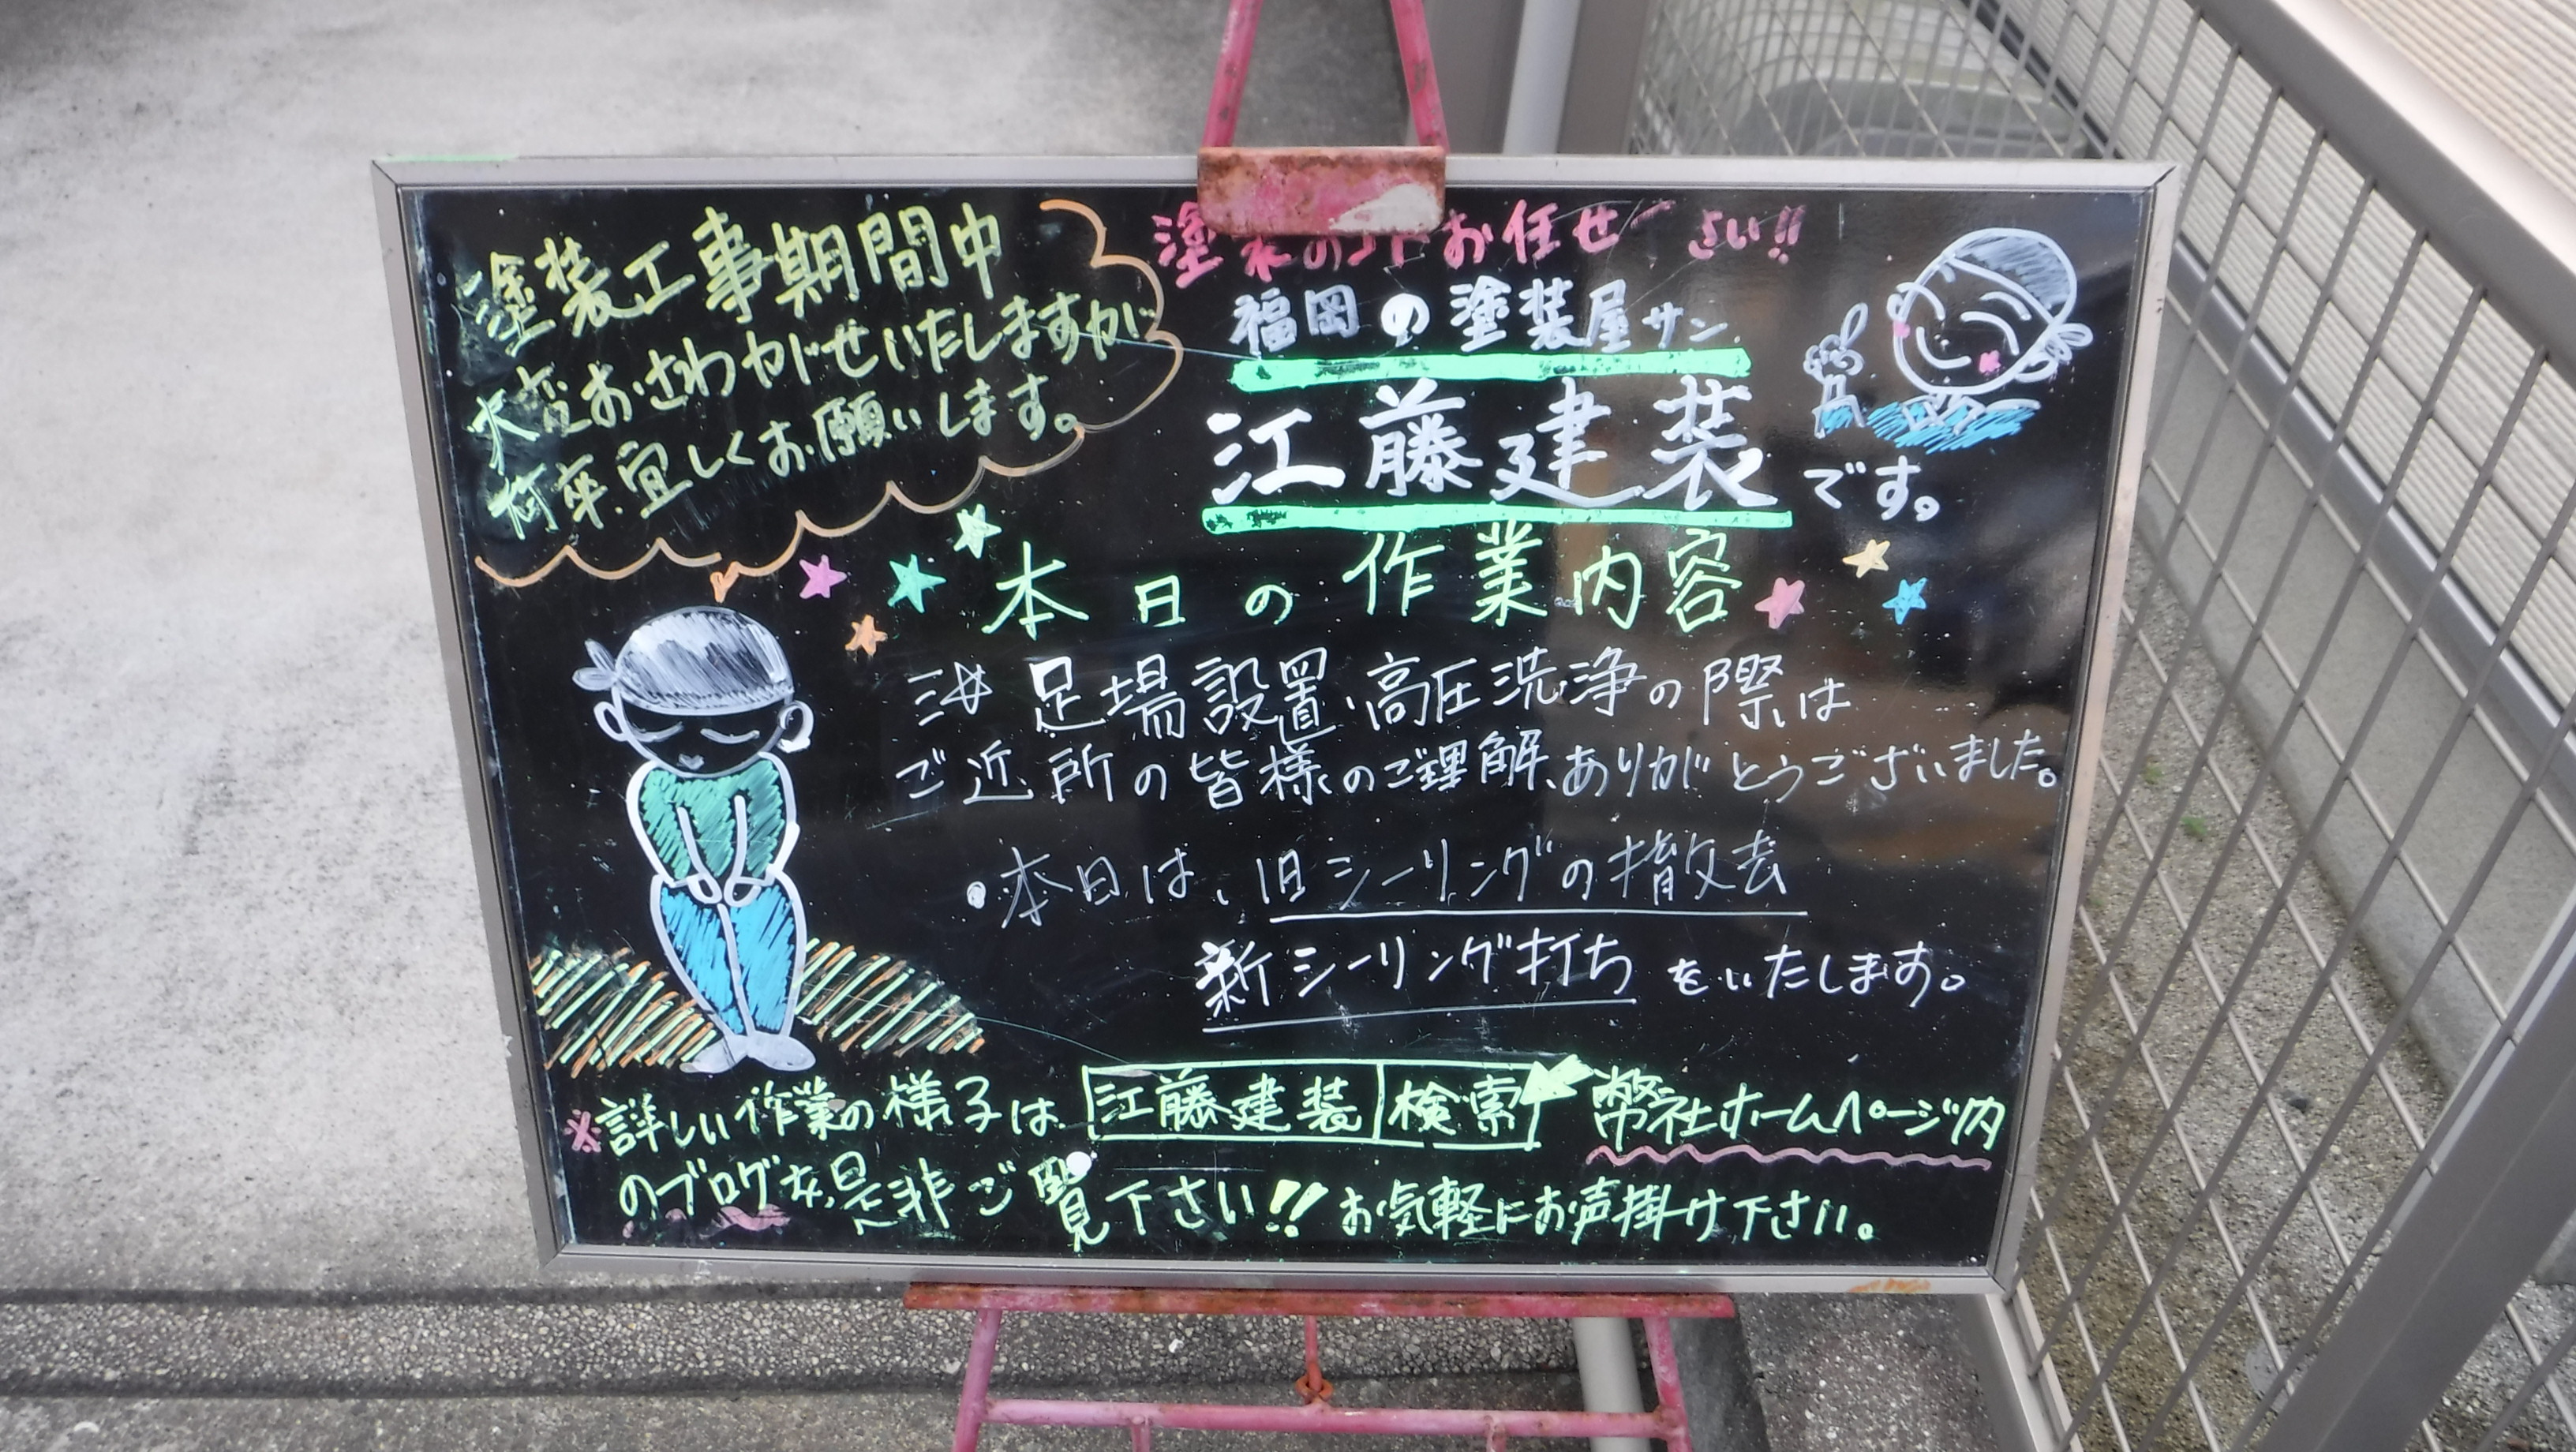 塗装工事期間中
大変おさわがせいたしますが
何卒宜しくお願いします。
塗装のコトお任せ さい!!
福岡の塗装屋サン
江藤建装です。
本日の作業内容
足場設置・高圧洗浄の際は
ご近所の皆様のご理解、ありがとうございました。
・本日は、旧シーリングの撤去
新シーリング打ちをいたします。
※詳しい作業の様子は 江藤建装 検索 弊社ホームページ内
のブログを、是非ご覧下さい!! お気軽にお声掛け下さい。